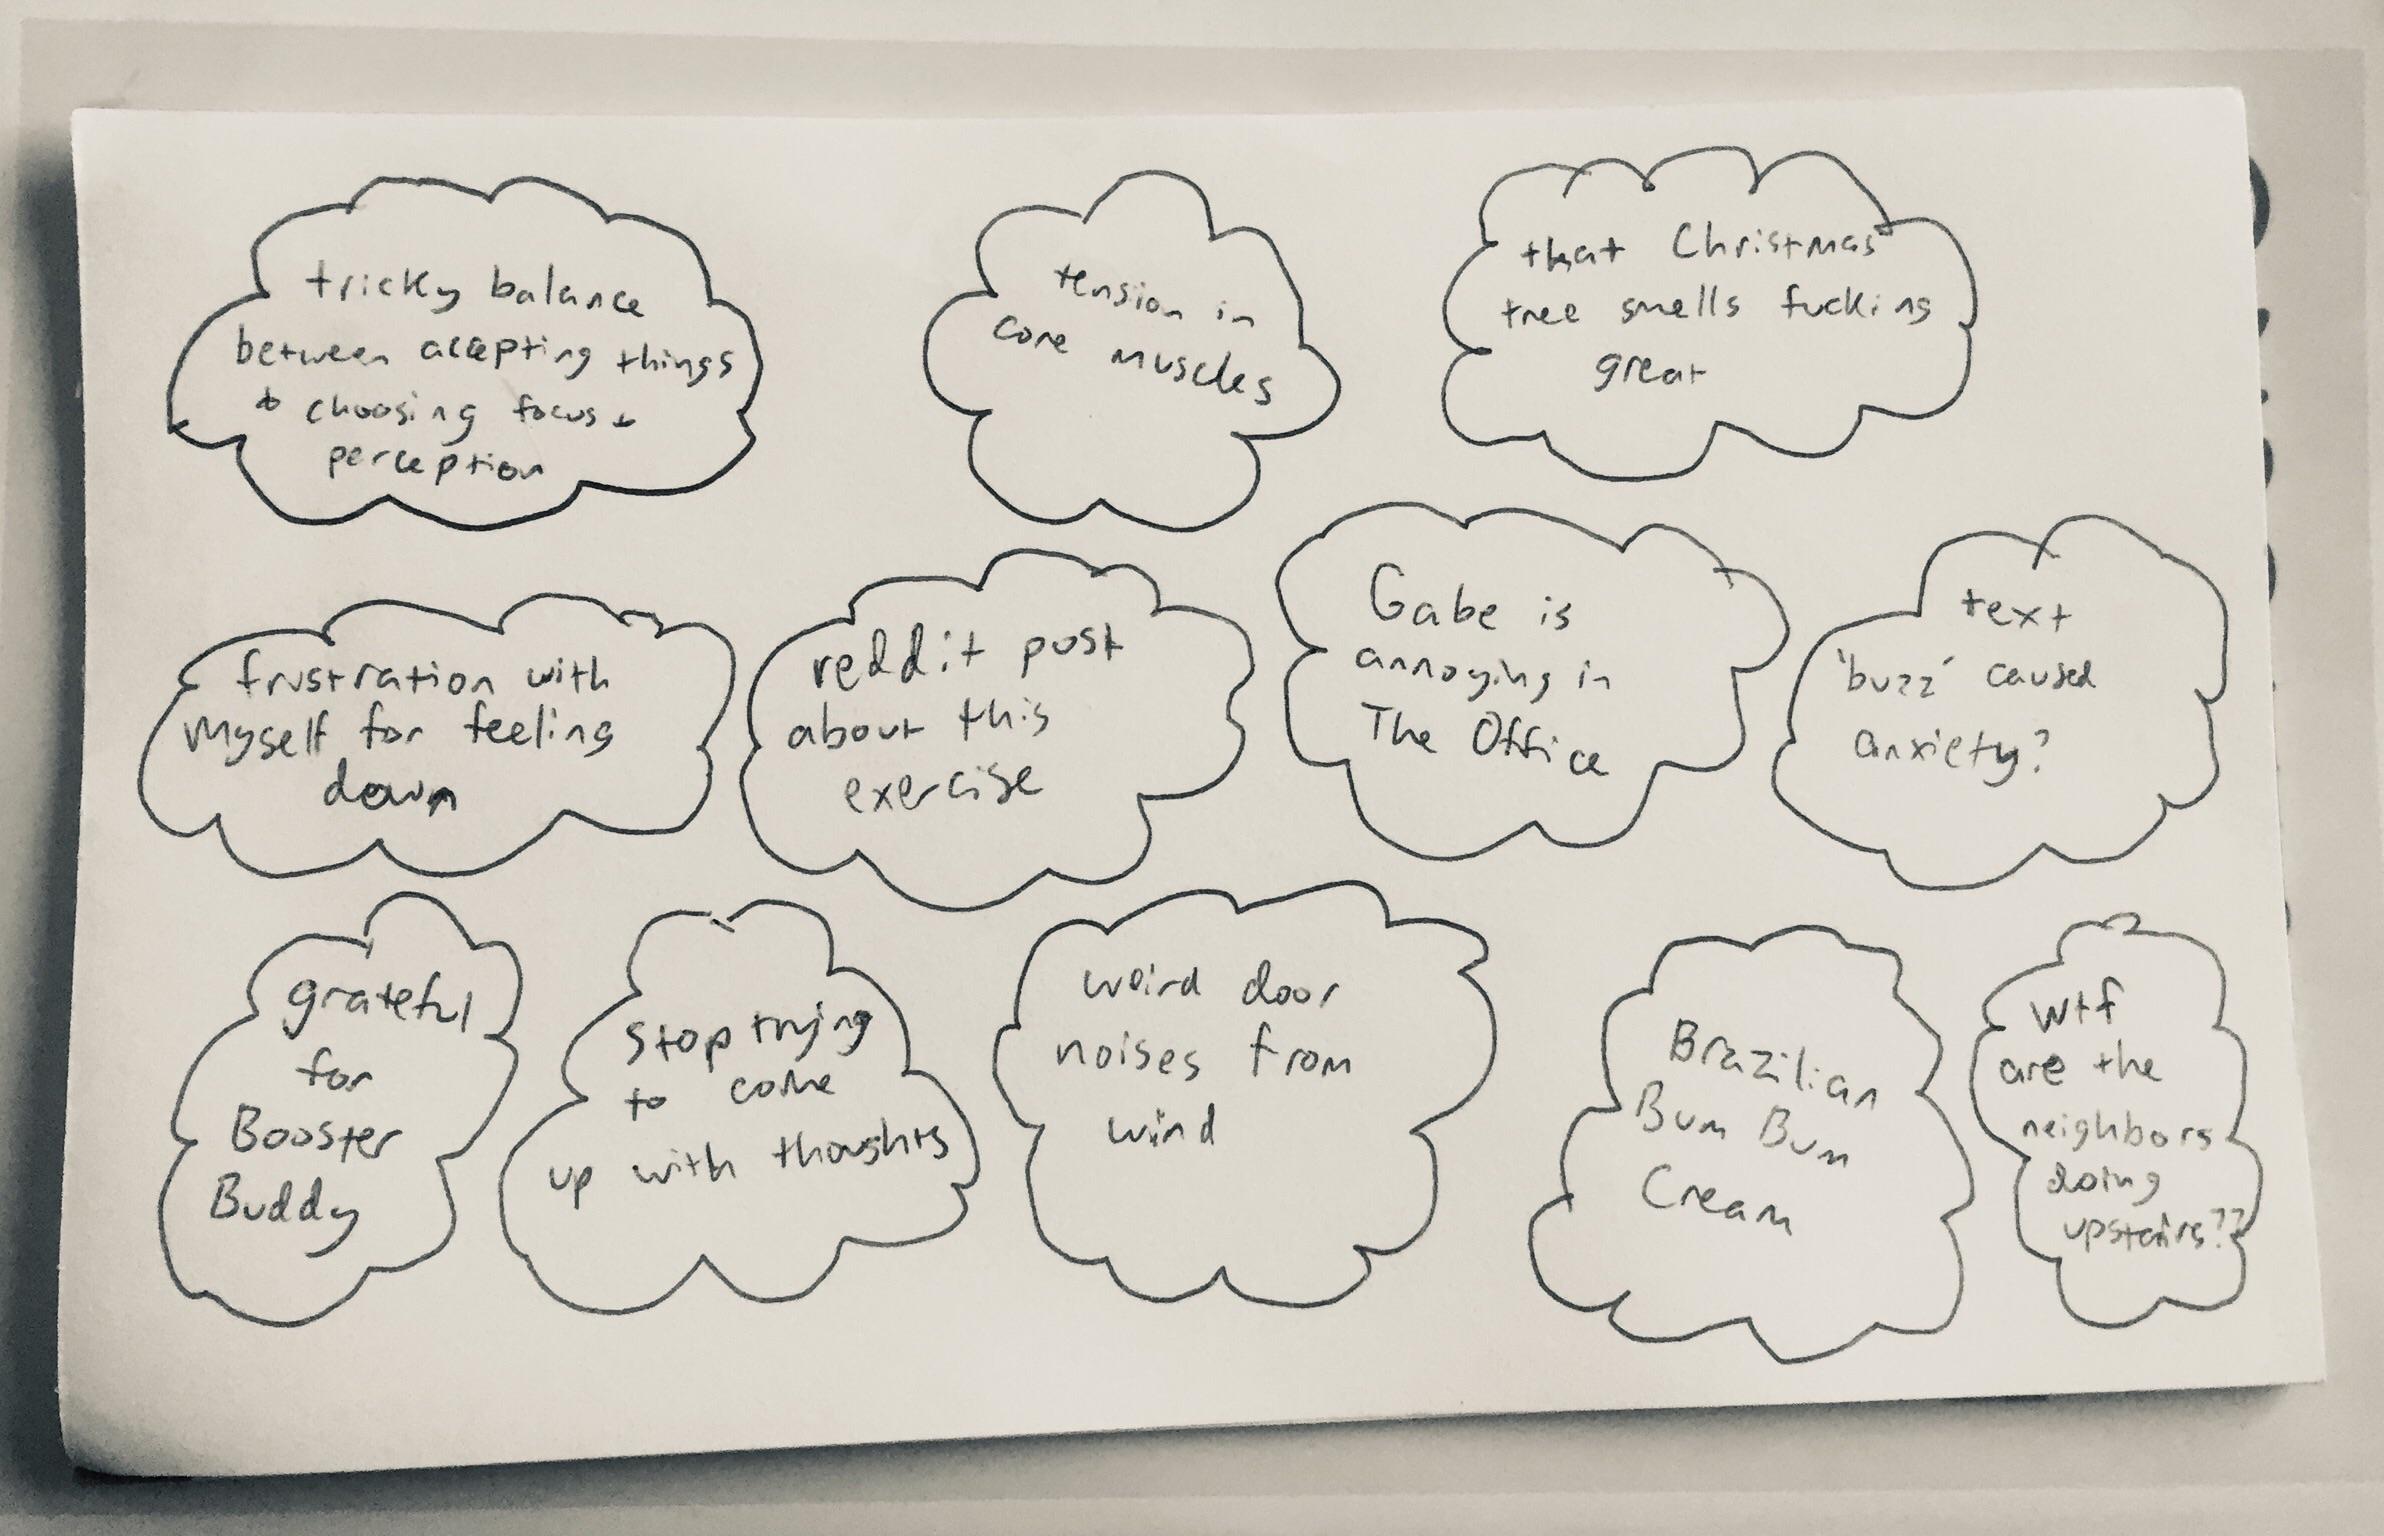 tricky balance
between accepting things
+ choosing focus +
perception
tension in
core muscles
that Christmas
tree smells fucking
great
frustration with
myself for feeling
down
reddit post
about this
exercise
Gabe is
annoying in
The Office
text
'buzz' caused
anxiety?
grateful
for
Booster
Buddy
stop trying
to come
up with thoughts
weird door
noises from
wind
Brazilian
Bum Bum
Cream
wtf
are the
neighbors
doing
upstairs??